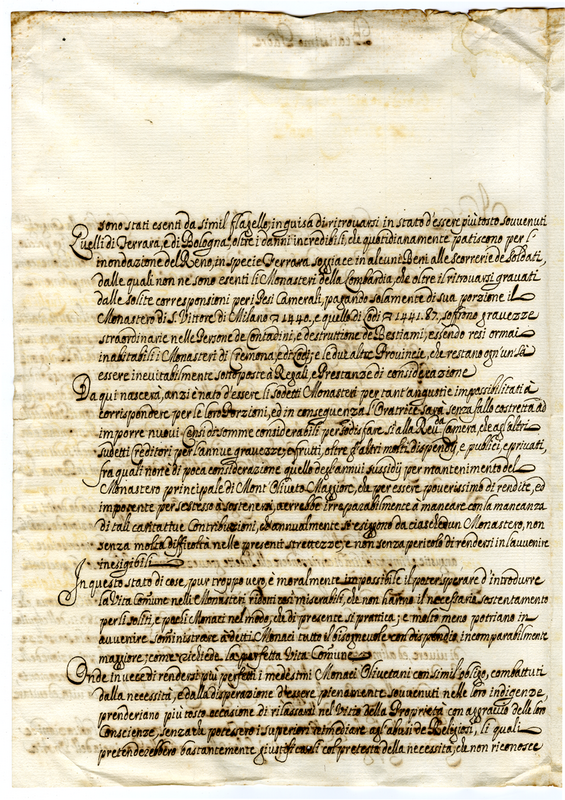 sono stati esenti da simil flagello, in guisa di ritrovarsi in stato d'essere più tosto souvenuti
Quelli di Ferrara, e di Bologna, oltre i danni incredibili, che quotidianamente patiscono per l'
inondazione del Reno, in specie Ferrara soggiace in alcuni Beni alle scorrerie de Soldati,
dalle quali non ne sono esenti li Monasteri della Lombardia, che oltre il ritrovarsi gravati
dalle solite corresponsioni per i Pesi Camerali, pagando solamente di sua porzione il
Monastero di S. Vittore di Milano 1440. e quello di Lodi 1441.87, soffrono gravezze
straordinarie nelle Persone de Contadini, e destruttione de Bestiami, essendo resi ormai
inabitabili i Monasteri di Cremona, e di Lodi; e le due altre Provincie, che restano ogn'un sà
essere inevitabilmente sottoposte à Regali, e Prestanze di considerazione
Da qui nascerà, anzi è nato d'essere li sudetti Monasteri per tant'angustie impossibilitati à
corrispondere per le loro Porzioni, ed in conseguenza l'Oratrice sarà senza fallo costretta ad
imporre nuovi Censi di somme considerabili per sodisfare sì alla Reu.da Camera, che agl'altri
sudetti Creditori per l'annue gravezze, e frutti, oltre gl'altri molti dispendij, e publici, e privati,
frà quali non è di poca considerazione quello degl'annui sussidij per mantenimento del
Monastero principale di Mont'Oliveto Maggiore, che per essere poverissimo di rendite, ed
impotente per se stesso à sostenersi, averebbe irreparabilmente à mancare con la mancanza
di tali caritative Contribuzioni, ch'annualmente si esiggono da ciaschedun Monastero, non
senza molta difficoltà nelle presenti strettezze, e non senza pericolo di rendersi in l'avvenire
inesigibili
In questo stato di cose, pur troppo vero, è moralmente impossibile il poter sperare d'introdurre
la Vita Comune nelli Monasteri ridotti così miserabili, che non hanno il necessario sostentamento
per li soliti, e pochi Monaci nel modo, che di presente si pratica; e molto meno potriano in
avvenire somministrare à detti Monaci tutto il bisognevole con dispendio incomparabilmente
maggiore, come richiede la perfetta Vita Comune
Onde in vece di rendersi più perfetti i medesimi Monaci Olivetani con simil obligo, combattuti
dalla necessità, e dalla disperazione d'essere pienamente souvenuti nelle loro indigenze,
prenderiano più tosto occasione di rilassarsi nel Vitio della Proprietà con aggravio delle loro
Conscienze, senza che potessero i superiori rimediare agl'abusi de Religiosi, li quali
pretenderebbero bastantemente giustificarsi col pretesto della necessità, che non riconosce